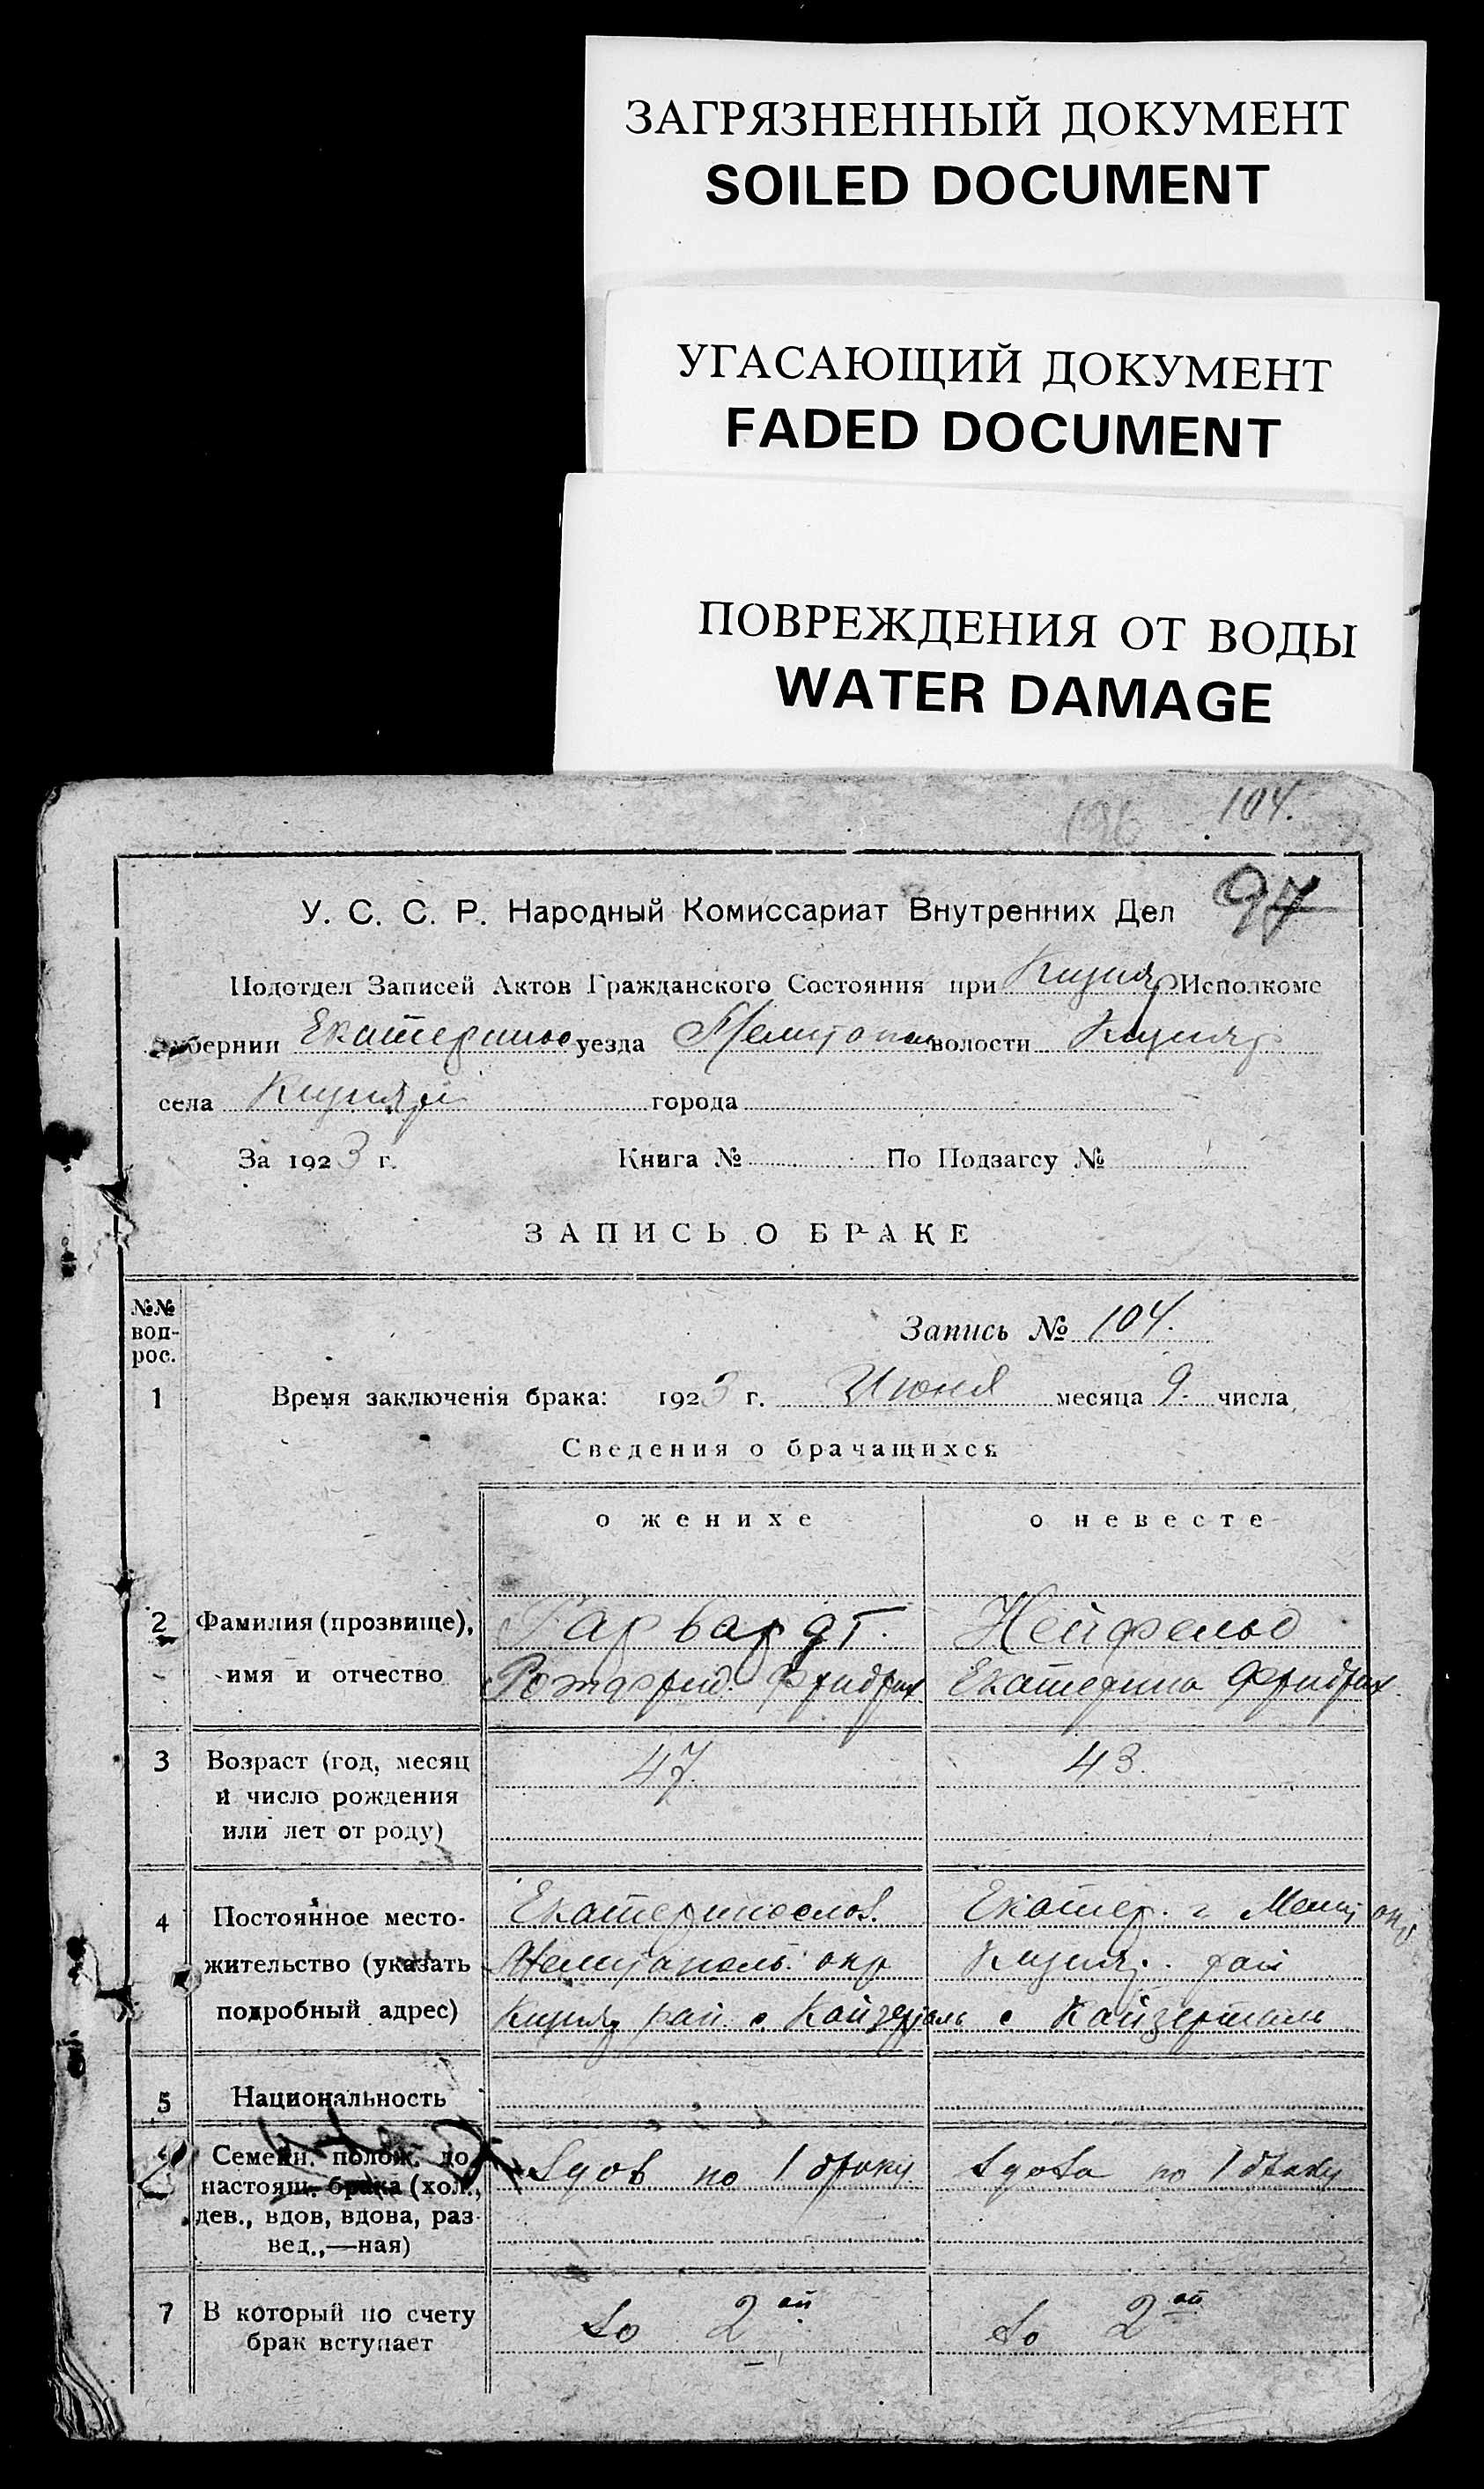 ЗАГРЯЗНЕННЫЙ ДОКУМЕНТ
SOILED DOCUMENT
УГАСАЮЩИЙ ДОКУМЕНТ
FADED DOCUMENT
ПОВРЕЖДЕНИЯ ОТ ВОДЫ
WATER DAMAGE
104.
97
У. С. С. Р. Народный Комиссариат Внутренних Дел
Подотдел Записей Актов Гражданского Состояния при Кизияр Исполкоме
губернии Екатеринос уезда Мелитопол волости Кизияр
села Кизияри города
За 1923 г. Книга № По Подзагсу №
ЗАПИСЬ О БРАКЕ
№№ воп-рос.
Запись № 104.
1 Время заключенія брака: 1923 г. Июня месяца 9. числа
Сведения о брачащихся
о женихе о невесте
2 Фамилия (прозвище), Гарвардт. Нейфельд
имя и отчество Фридрих Екатерина Фридрих.
3 Возраст (год, месяц 47. 43.
и число рождения
или лет от роду)
4 Постоянное место- Екатеринослов. Екатер. г Мелит окр
жительство (указать Мелитополь. окр Кизияр. рай
подробный адрес) Кизияр рай. с. Кайзерталь с Кайзерталь
5 Национальность
Семейн. полож. до вдов по 1 браку вдова по 1 браку
настоящ. брака (хол.,
дев., вдов, вдова, раз-
вед.,—ная)
7 В который по счету во 2ой во 2ой
брак вступает